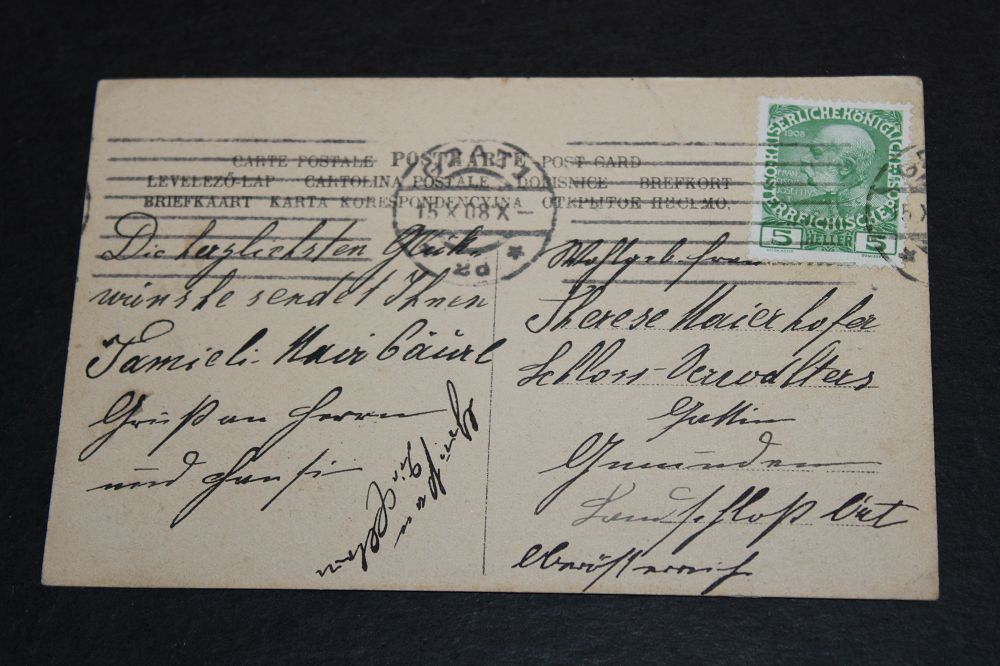 CARTE POSTALE POSTKARTE POST CARD
LEVELEZŐ-LAP CARTOLINA POSTALE DOPISNICE BREFKORT
BRIEFKAART KARTA KORESPONDENCYJNA ОТКРЫТОЕ ПИСЬМО.
GRAZ 1
15 X 08 X
KAISERLICHE KÖNIGLICHE
ÖSTERREICHISCHE POST
1908
5 HELLER 5
Die herzlichsten Glück
wünshe sendet Ihnen
Famieli Mair
Gruß an Herrn
und Hansi
Wohlgeb Frau
Therese Maierhofer
Schloss-Verwalters
Gattin
Gmunden
Landschloß Ort
Oberösterreich